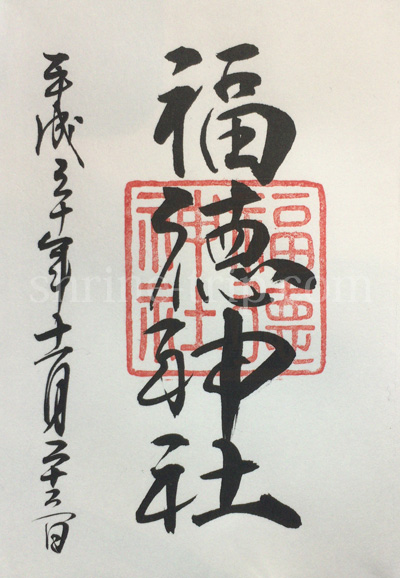 福徳神社
福德
神社
平成三十年十一月二十三日
shrine-trip.com